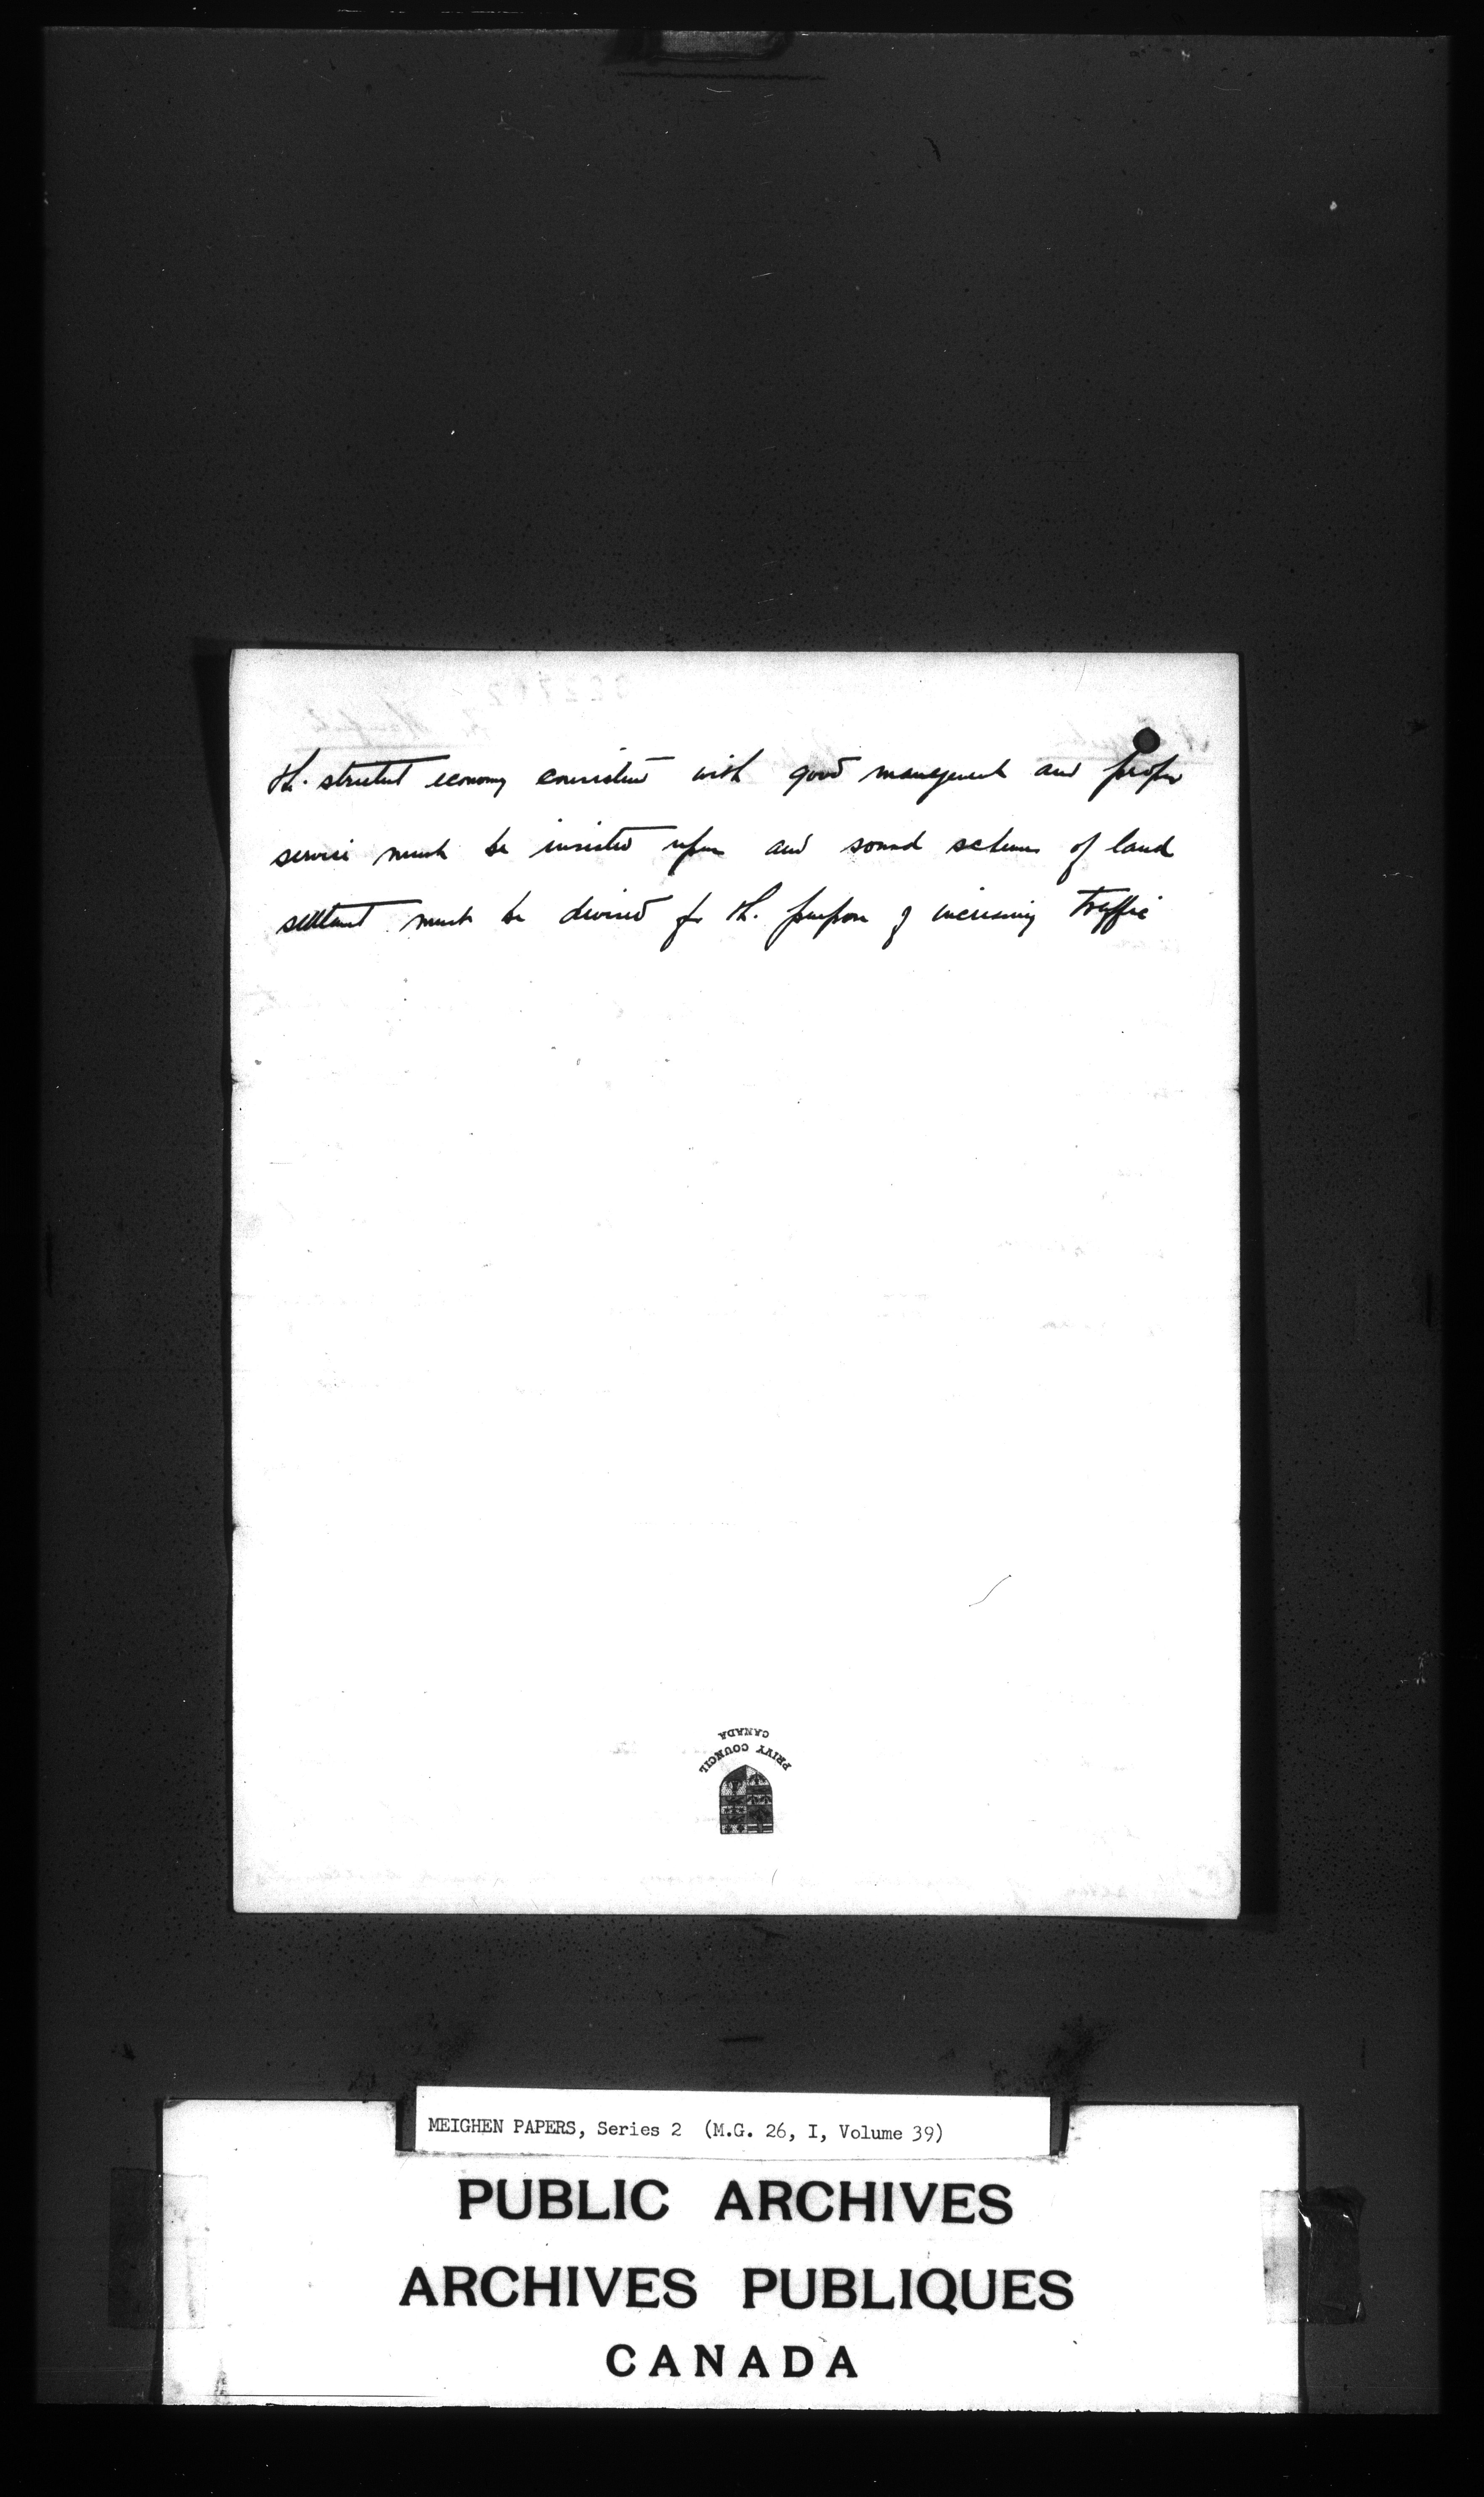 The strictest economy consistent with good management and proper
service must be insisted upon and sound schemes of land
settlement must be devised for the purpose of increasing traffic
PRIVY COUNCIL
CANADA
MEIGHEN PAPERS, Series 2 (M.G. 26, I, Volume 39)
PUBLIC ARCHIVES
ARCHIVES PUBLIQUES
CANADA